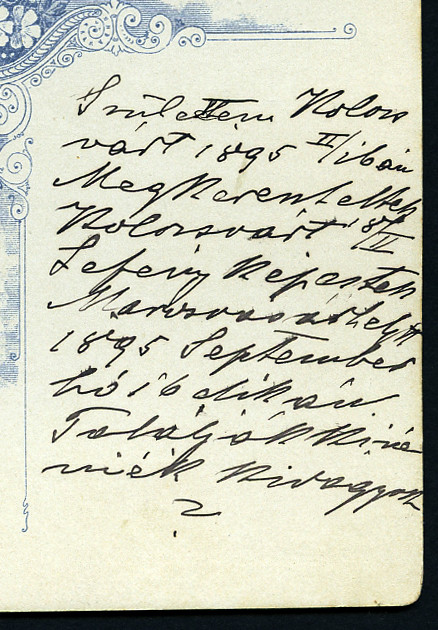 Születtem Kolos
várt 1895 II/16án
Megkereszteltek
Kolozsvárt 18/II
Lefényképeztek
Marosvasárhelyt
1895 September
hó 16dikán
Találják ki né
niék ki vagyok
?